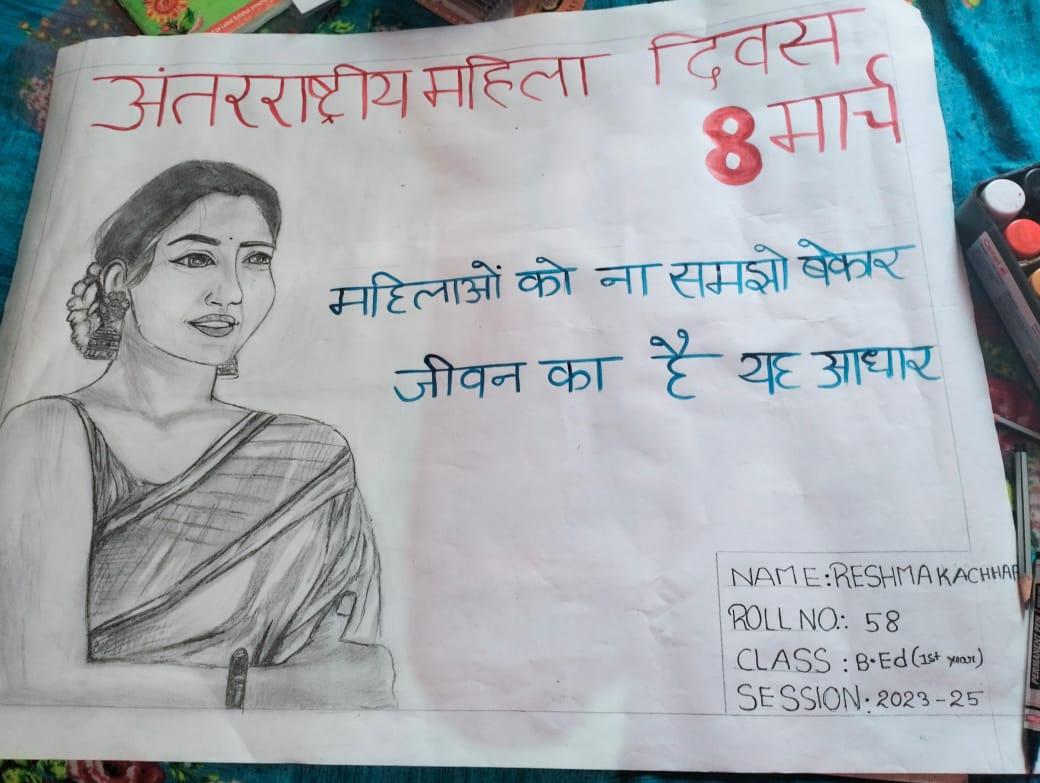 अंतरराष्ट्रीय महिला दिवस
8 मार्च
महिलाओं को ना समझो बेकार
जीवन का है यह आधार
NAME:RESHMA KACHHAP
ROLL NO.: 58
CLASS : B.Ed (1st year)
SESSION: 2023-25